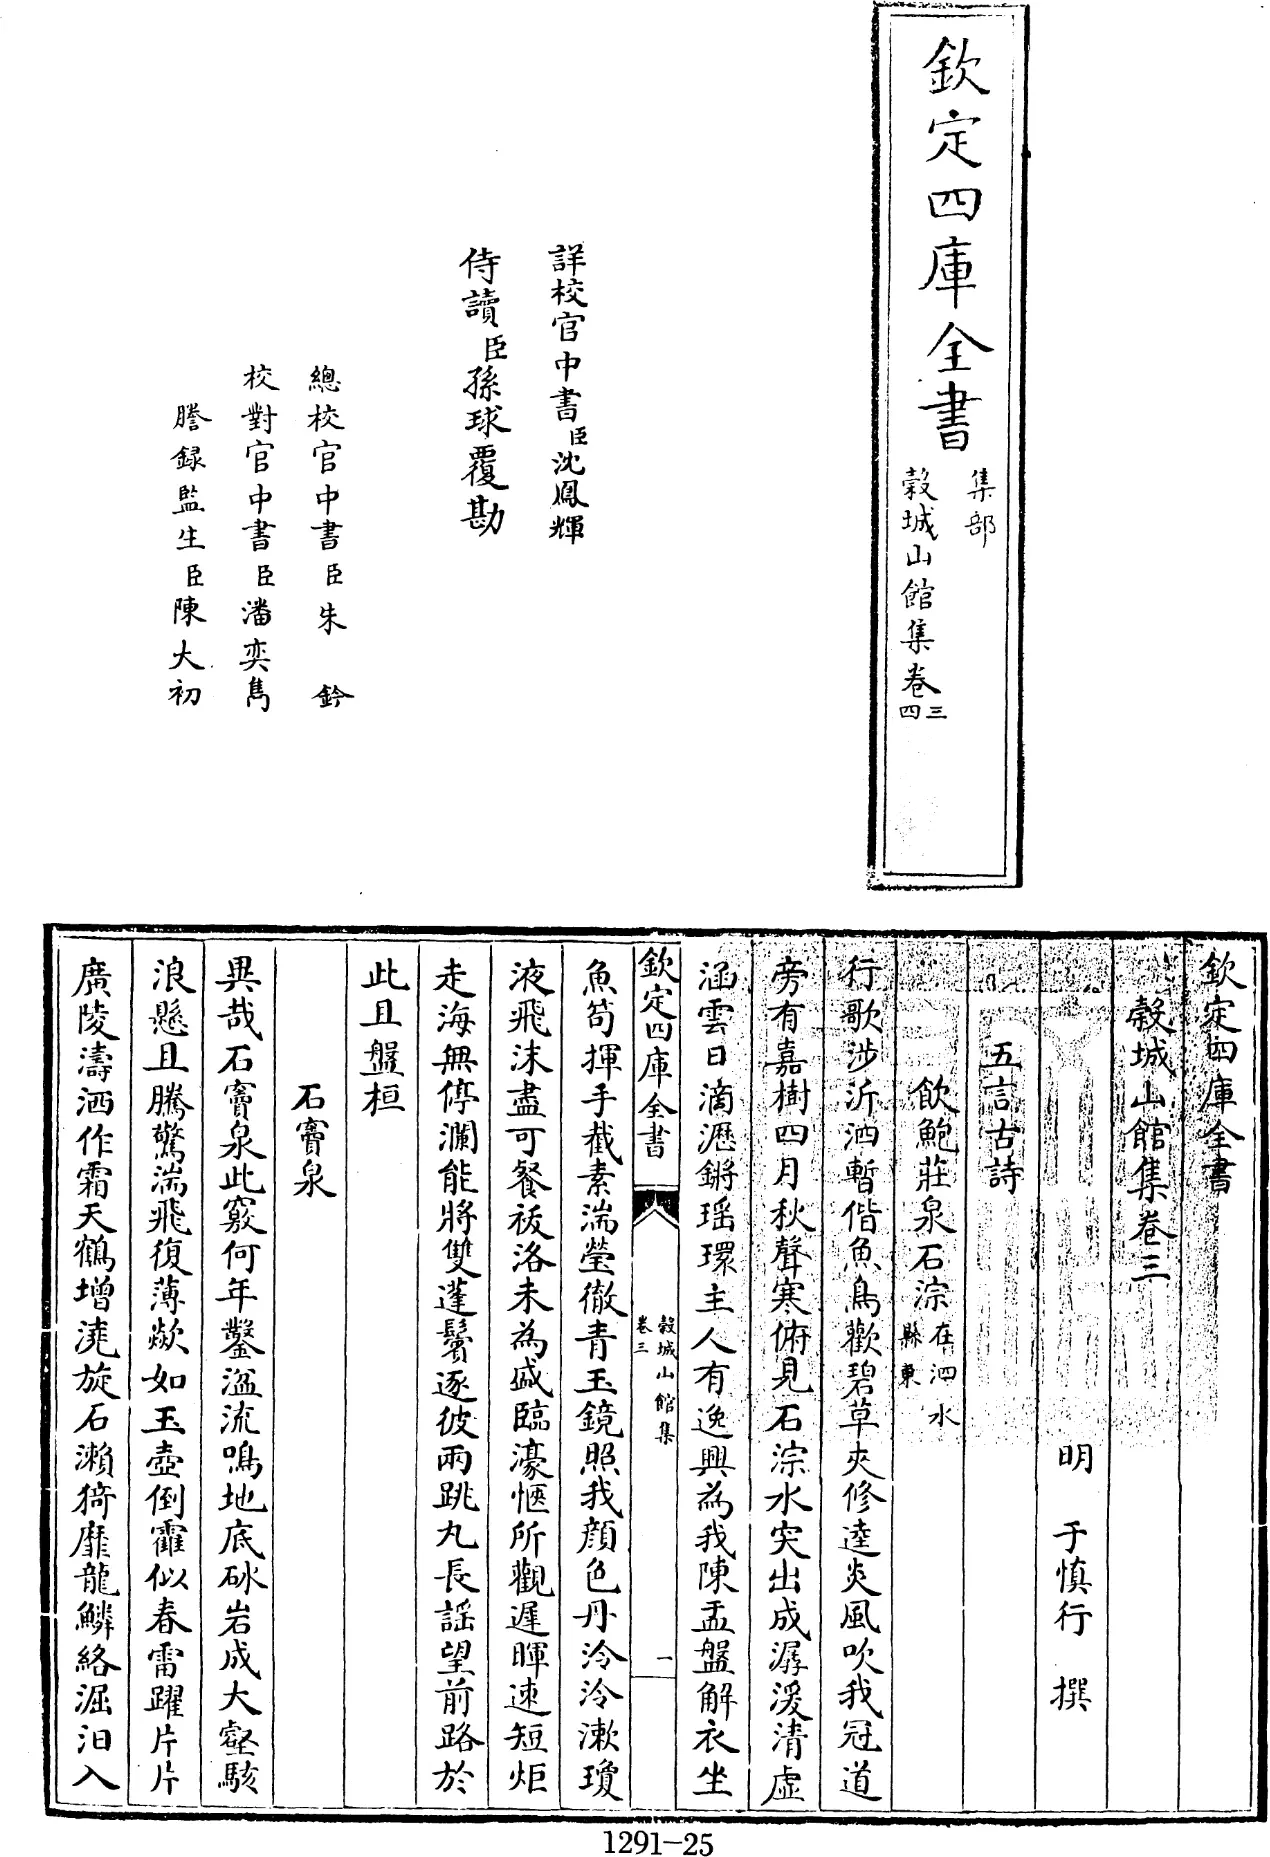 欽定四庫全書
集部
穀城山館集卷三
四
詳校官中書臣沈鳳輝
侍讀臣孫球覆勘
總校官中書臣朱鈐
校對官中書臣潘奕雋
謄錄監生臣陳大初
欽定四庫全書
穀城山館集卷三
明 于慎行 撰
五言古詩
飲鮑莊泉石淙在泗水
縣東
行歌涉沂泗暫偕魚鳥歡碧草夾修逵炎風吹我冠道
旁有嘉樹四月秋聲寒俯見石淙水突出成潺湲清虛
涵雲日滴瀝鏘瑶環主人有逸興為我陳盂盤解衣坐
欽定四庫全書
穀城山館集
卷三
一
魚笱揮手截素湍瑩徹青玉鏡照我顔色丹泠泠漱瓊
液飛沫盡可餐祓洛未為盛臨濠愜所觀遲暉速短炬
走海無停瀾能將雙蓬鬢逐彼兩跳丸長謡望前路於
此且盤桓
石竇泉
異哉石竇泉此竅何年鑿湓流鳴地底砯岩成大壑駭
浪懸且騰驚湍飛復薄歘如玉壺倒霍似春雷躍片片
廣陵濤洒作霜天鶴增澆旋石瀨猗靡龍鱗絡淈汨入
1291-25